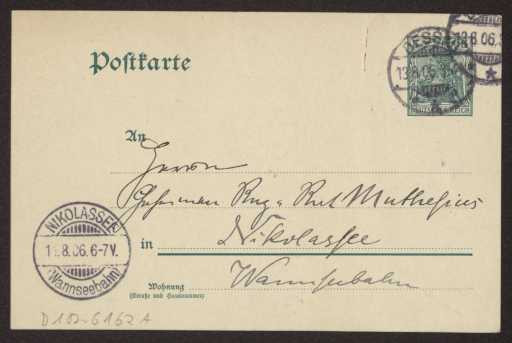 Postkarte
DESSAU
13.8.06
13.8.06.
An
Herrn
Geheimen Reg. Rat Muthesius
NIKOLASSEE
8.06.6-7V.
(Wannseebahn)
in Nikolassee
Wannseebahn
Wohnung
(Straße und Hausnummer)
D 102-6162 A